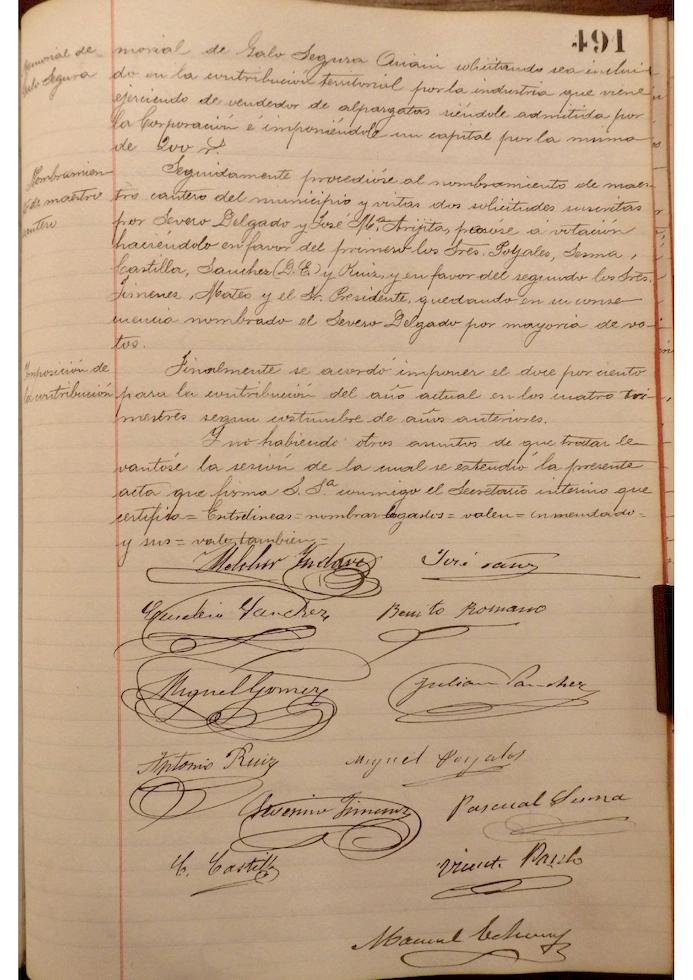 491
morial de Galo Segura Aniain solicitando sea inclui
Memorial de
Galo Segura
do en la contribución territorial por la industria que viene
ejerciendo de vendedor de alpargatas siéndole admitida por
la Corporación é imponiéndole un capital por la misma
de 200
Nombramien
to de maestro
cantero
Seguidamente procedióse al nombramiento de maes-
tro cantero del municipio y vistas dos solicitudes suscritas
por Severo Delgado y José Mª Arijita, pasóse a votación
haciéndolo en favor del primero los Sres. Poyales, Serna,
Castilla, Sanchez (D. E.) y Ruiz, y en favor del segundo los Sres.
Jimenez, Mateo y el Sr. Presidente, quedando en su conse
cuencia nombrado el Severo Delgado por mayoría de vo-
tos.
Imposición de
la contribución
Finalmente se acordó imponer el doce por ciento
para la contribución del año actual en los cuatro tri-
mestres segun costumbre de años anteriores.
Y no habiendo otros asuntos de que tratar le-
vantóse la sesión de la cual se extendió la presente
acta que firma S. Sª. conmigo el Secretario interino que
certifico = Entrelineas = nombrar = gastos = valen = enmendado =
y sus = vale tambien =
Melchor
José Sanz
Eusebio Sanchez
Benito Romano
Miguel Gomez
Julian Sanchez
Antonio Ruiz
Miguel Poyales
Severino Jimenez
Pascual Serna
C. Castilla
Vicente
Manuel